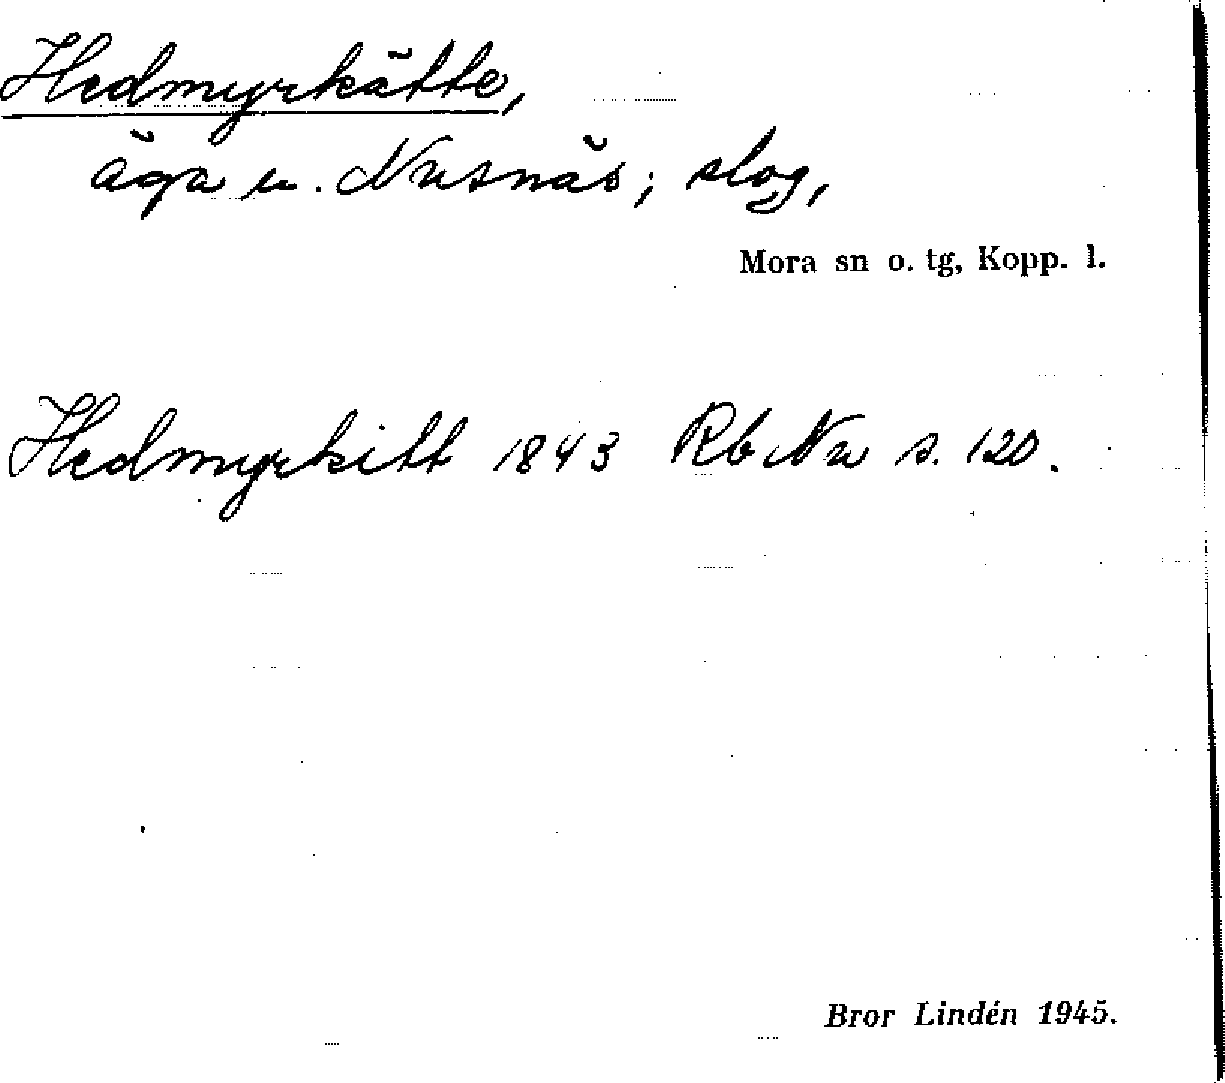 Hedmyrkätte,
äga u. Nusnäs; slog,
Mora sn o. tg, Kopp. l.
Hedmyrkitt 1843 Rb Nu s. 120.
Bror Lindén 1945.